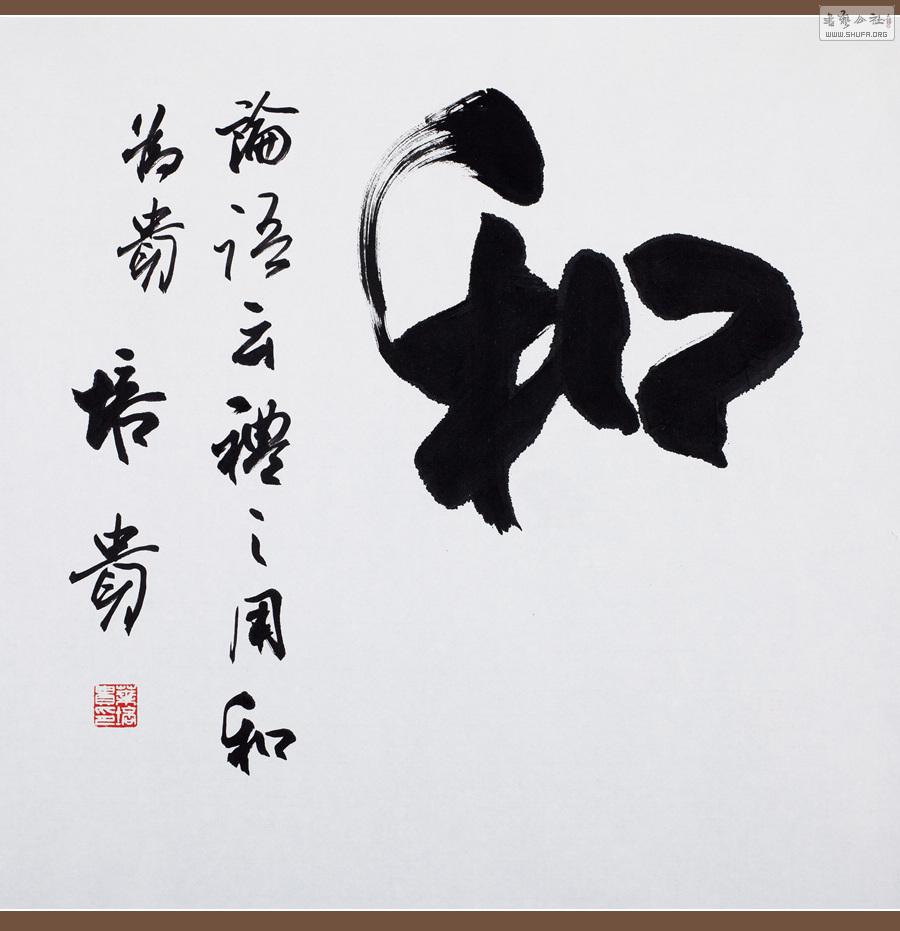 和
論語云禮之用和
為貴
培貴
葉培貴印
書藝公社
WWW.SHUFA.ORG